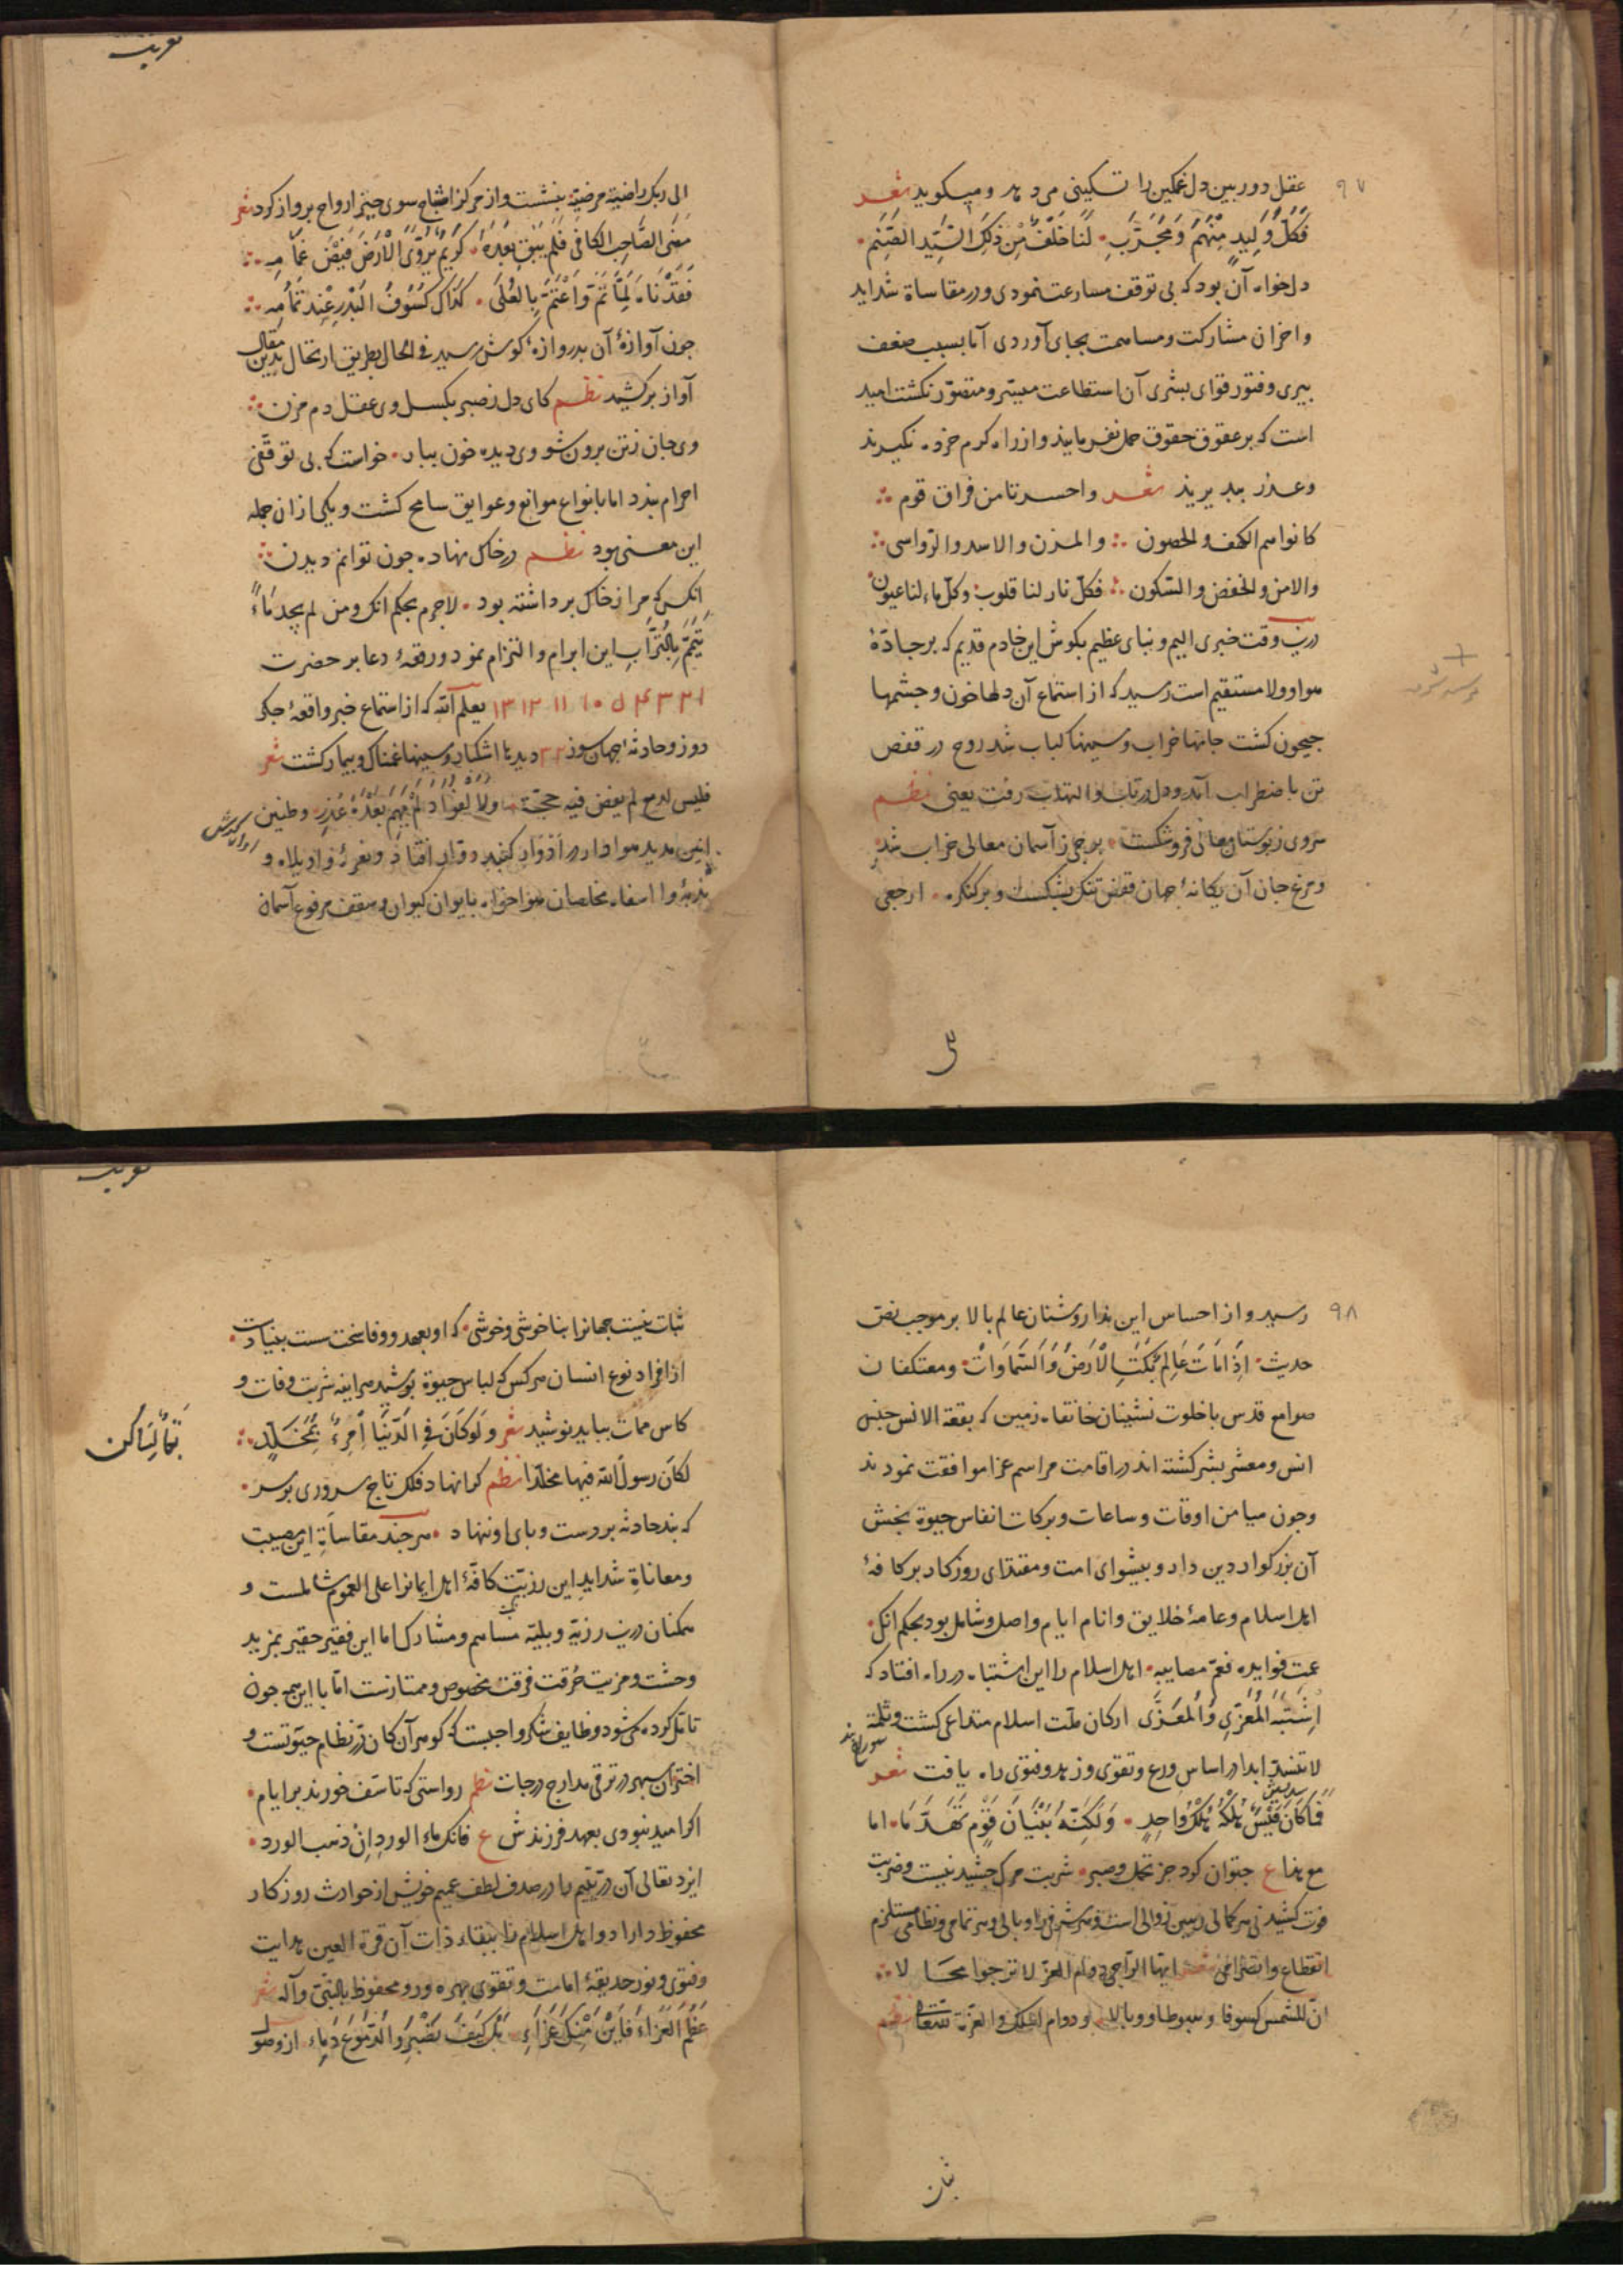 ۹۷
عقل دوربین دل غمکین را تسکینی می دهد و میکوید شعر
فَکُلُّ وَلِیدٍ مِنْهُمُ وَمُجَرَّبٍ لَنَا خَلَفٌ مِنْ ذَلِکَ السَّیِّدِ
دلخواه آن بود که بی توقف مسارعت نمودی ودر مقاساة شداید
واحزان مشارکت ومساهمت بجای آوردی اما بسبب ضعف
پیری وفتور قوای بشری آن استطاعت میسر ومتصور نکشت امید
است که بر عقوق حقوق حمل نفرمایند واز راه کرم خرده نکیرند
وعذر بپذیرند شعر واحسرتا من فراق قوم
کانوا هم الکهف والحصون والمزن والاسد والرواسی
والامن والخفض والسکون فکل نار لنا قلوب وکل ماء لنا عیون
درین وقت خبری الیم ونبای عظیم بکوش این خادم قدیم که بر جادهٔ
هوا وولا مستقیم است رسید که از استماع آن دلها خون وچشمها
جیحون کشت جانها خراب وسینها کباب شد روح در قفص
تن باضطراب آمد ودل در تاب والتهاب رفت یعنی نظم
سروی ز بوستان معالی فرو شکست برجی ز آسمان معالی خراب شد
ومرغ جان آن یکانهٔ جهان قفص تنک بشکست وبر کنکره ارجعی
الی ربک راضیة مرضیة بنشست واز مرکز اشباح سوی حیز ارواح پرواز کرد شعر
مَضَی الصَّاحِبُ الکَافِی فَلَمْ یَبْقَ بَعْدَهُ کَرِیمٌ یُرَوِّی الْاَرْضَ فَیْضُ غَمَامِهِ
فَقَدْنَاهُ لَمَّا تَمَّ وَاعْتَمَّ بِالْعُلَی کَذَاکَ کُسُوفُ الْبَدْرِ عِنْدَ تَمَامِهِ
چون آوازهٔ آن بدروازهٔ کوش رسید فی الحال بطریق ارتحال بدین مقال
آواز برکشید نظم کای دل ز صبر بکسل وی عقل دم مزن
وی جان ز تن برون شو وی دیده خون ببار خواست که بی توقفی
احرام بندد اما بانواع موانع وعوایق سانح کشت ویکی ازان جمله
این معنی بود نظم در خاک نهاده چون توانم دیدن
آنکس که مرا ز خاک برداشته بود لاجرم بحکم انک ومن لم یجد مَاءً
تَیَمَّمَ بِالتُّرَابِ این ابرام والتزام نمود ورقعهٔ دعا بر حضرت
یعلم الله که از استماع خبر واقعهٔ جکر
دوز وحادثهٔ جهان سوز دیدها اشکبار وسینها غمناک وبیمار کشت شعر
فلیس لدمع لم یفض فیه حجة ولا لفؤاد لم یهم بعده عذر وطنین
انین مدید هواداران در ادوار کنبد دوار افتاد ونعرهٔ واویلاه و
ندبهٔ وا اسفاه مخلصان هواخواه بایوان کیوان وسقف مرفوع آسمان
۹۸
رسید واز احساس این ندا روشنان عالم بالا بر موجب نص
حدیث اِذَا مَاتَ عَالِمٌ بَکَتِ الْاَرْضُ وَالسَّمَاوَاتُ ومعتکفان
صوامع قدس با خلوت نشینان خانقاه زمین که بقعة الانس جنس
انس ومعشر بشر کشته اند در اقامت مراسم عزا موافقت نمودند
وچون میامن اوقات وساعات وبرکات انفاس حیوة بخش
آن بزرکوار دین دار وپیشوای امت ومقتدای روزکار بر کافهٔ
اهل اسلام وعامهٔ خلایق وانام ایام واصل وشامل بود بحکم انک
عمت فوایده فعم مصایبه اهل اسلام را این اشتباه در راه افتاد که
اِشْتَبَهَ الْمُعَزِّی وَالْمُعَزَّی ارکان ملت اسلام متداعی کشت وثلمة
لا تنسد ابدا در اساس ورع وتقوی وزهد وفتوی راه یافت شعر
فَمَا کَانَ قَیْسٌ هُلْکُهُ هُلْکُ وَاحِدٍ وَلَکِنَّهُ بُنْیَانُ قَوْمٍ تَهَدَّمَا اما
مع هذا ع چتوان کرد جز تحمل وصبر شربت مرک چشیدنیست وضربت
فوت کشیدنی هر کمالی رهین زوالی است وهر شرفی را وبالی وهر تمامی ونظامی مستلزم
انقطاع وانصرامی شعر ایها الراجی دوام العز لا ترجوا محالا
ان للشمس کسوفا وهبوطا ووبالا ودوام الملک والعزة لله تعالی نظم
ثبات نیست جهانرا بناخوشی وخوشی که او بعهد ووفا سخت سست بنیادست
از افراد نوع انسان هر کس که لباس حیوة پوشید هر آینه شربت وفات و
کاس ممات بباید نوشید شعر وَلَوْ کَانَ فِی الدُّنْیَا اُمْرِءٌ بِمُخَلَّدٍ
لکان رسولُ الله فیها مخلدا نظم کرا نهاد فلک تاج سروری بر سر
که بند حادثه بر دست وپای او ننهاد هر چند مقاساة این مصیبت
ومعاناة شداید این رزیت کافهٔ اهل ایمانرا علی العموم شاملست و
همکنان درین رزیه وبلیه مساهم ومشارک اما این فقیر حقیر بمزید
وحشت ومزیت حرقت فرقت مخصوص وممتازست اما با این همه چون
تأمل کرده می شود وظایف شکر واجبست که کوهر آن کان در نظام حیوتست و
اختران سپهر در ترقی مدارج درجات نظم رواستی که تأسف خورند بر ایام
اکر امید نبودی بعهد فرزندش ع فانک ماء الورد ان ذهب الورد
ایزد تعالی آن در یتیم را در صدف لطف عمیم خویش از حوادث روزکار
محفوظ داراد واهل اسلام را ببقاء ذات آن قرة العین هدایت
وفتوی ونور حدیقهٔ امامت وتقوی بهره ور ومحفوظ بالنبی وآله شعر
عَظُمَ الْعَزَاءُ فَاَیْنَ مِنْکَ عَزَاءِ بَلْ کَیْفَ نَصْبِرُ وَالدُّمُوعُ دِمَاء از وصول